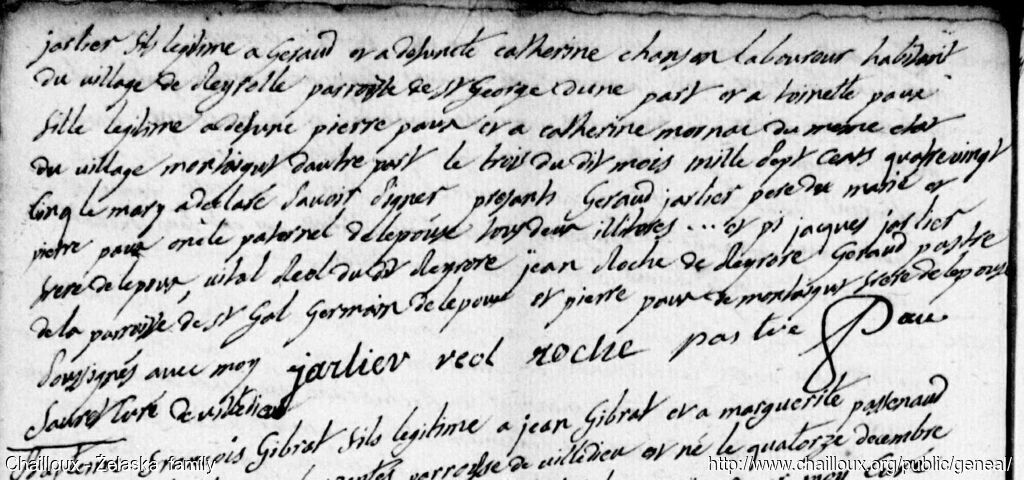 jarlier fils legitime a Geraud et a defuncte catherine chanson laboureur habitant
du village de Reyrolle parroisse de st George dune part et a toinette paux
fille legitime a defunt pierre paux et a catherine mornac du meme etat
du village montaigut dautre part le trois du dit mois mille sept cents quatre vingt
cinq le mary a declaré savoir signer presants Geraud jarlier pere du marié et
pierre paux oncle paternel de lepouse tous deux illiteres ... et pi jacques jarlier
frere de lepoux, vital Reol du dit Reyrore jean Roche de Reyrore Geraud pastre
de la parroisse de st Gal Germain de lepoux et pierre paux de montaigut frere de lepouse
soussignés avec moy jarlier reol roche pastre Paux
Sauret Curé de villedieu
Gibrat fils legitime a jean Gibrat et a marguerite passenaud
parroisse de villedieu et né le quatorze decembre
Chailloux - Zelaska family
http://www.chailloux.org/public/geneal/